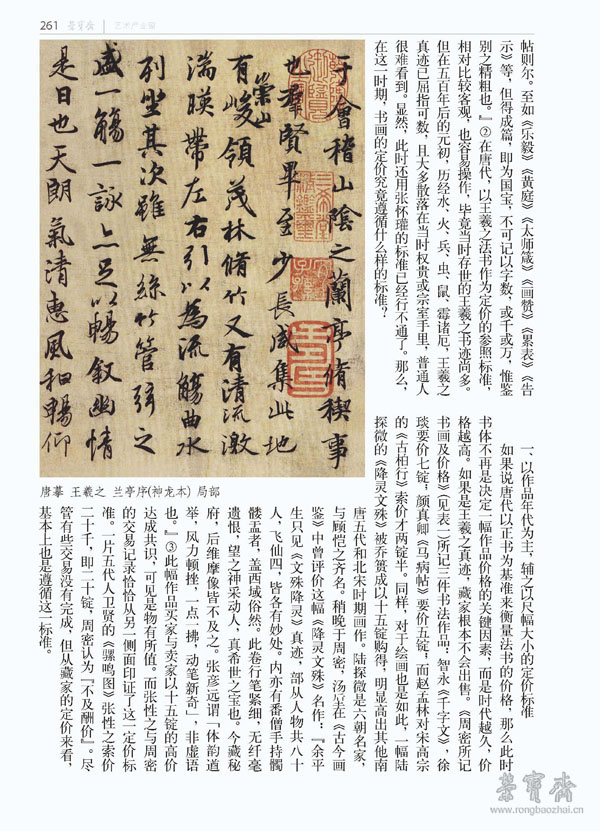 261 荣宝斋 艺术产业刊
帖则尔。至如《乐毅》《黄庭》《太师箴》《画赞》《累表》《告
示》等，但得成篇，即为国宝，不可记以字数，或千或万，惟鉴
别之精粗也。』②在唐代，以王羲之法书作为定价的参照标准，
相对比较客观，也容易操作，毕竟当时存世的王羲之书迹尚多。
但在五百年后的元初，历经水、火、兵、虫、鼠、霉诸厄，王羲之
真迹已屈指可数，且大多散落在当时权贵或宗室手里，普通人
很难看到。显然，此时还用张怀瓘的标准已经行不通了。那么，
在这一时期，书画的定价究竟遵循什么样的标准？
于會稽山陰之蘭亭脩稧事
也羣賢畢至少長咸集此地
有崇山峻領茂林脩竹又有清流激
湍暎帶左右引以為流觴曲水
列坐其次雖無絲竹管弦之
盛一觴一詠亦足以暢叙幽情
是日也天朗氣清惠風和暢仰
唐摹 王羲之 兰亭序(神龙本) 局部
一、以作品年代为主，辅之以尺幅大小的定价标准
如果说唐代以正书为基准来衡量法书的价格，那么此时
书体不再是决定一幅作品价格的关键因素，而是时代越久，价
格越高。如果是王羲之真迹，藏家根本不会出售，《周密所记
书画及价格》（见表一）所记三件书法作品：智永《千字文》，徐
琰要价七锭；颜真卿《马病帖》要价五锭；而赵孟林对宋高宗
的《古柏行》索价才两锭半。同样，对于绘画也是如此，一幅陆
探微的《降灵文殊》被乔篑成以十五锭购得，明显高出其他南
唐五代和北宋时期画作。陆探微是六朝名家，
与顾恺之齐名。稍晚于周密，汤垕在《古今画
鉴》中曾评价这幅《降灵文殊》名作：『余平
生只见《文殊降灵》真迹，部从人物共八十
人，飞仙四，皆各有妙处。内亦有番僧手持髑
髅盂者，盖西域俗然。此卷行笔紧细，无纤毫
遗恨，望之神采动人，真希世之宝也。今藏秘
府，后维摩像皆不及之。张彦远谓「体韵遒
举，风力顿挫，一点一拂，动笔新奇」，非虚语
也。』③此幅作品买家与卖家以十五锭的高价
达成共识，可见是物有所值。而张性之与周密
的交易记录恰恰从另一侧面印证了这一定价标
准。一片五代人卫贤的《骡鸣图》张性之索价
二十千，即二十锭，周密认为『不及酬价』。尽
管有些交易没有完成，但从藏家的定价来看，
基本上也是遵循这一标准。
荣宝斋
www.rongbaozhai.cn